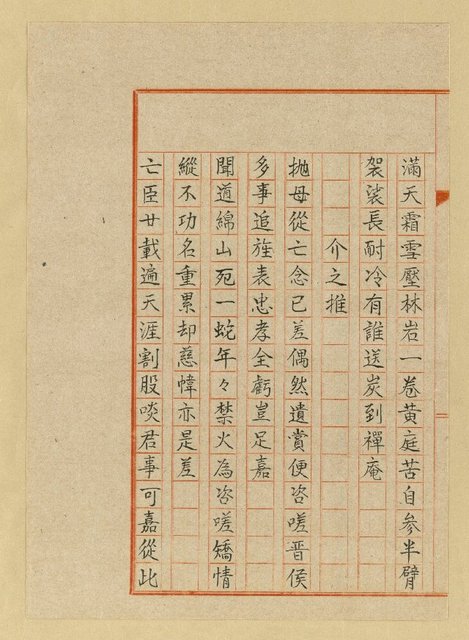 滿天霜雪壓林岩一卷黃庭苦自參半臂
袈裟長耐冷有誰送炭到禪庵
介之推
拋母從亡念已差偶然遺賞便咨嗟晉侯
多事追旌表忠孝全虧豈足嘉
聞道綿山死一蛇年々禁火為咨嗟矯情
縱不功名重累却慈幃亦是差
亡臣廿載遍天涯割股啖君事可嘉從此